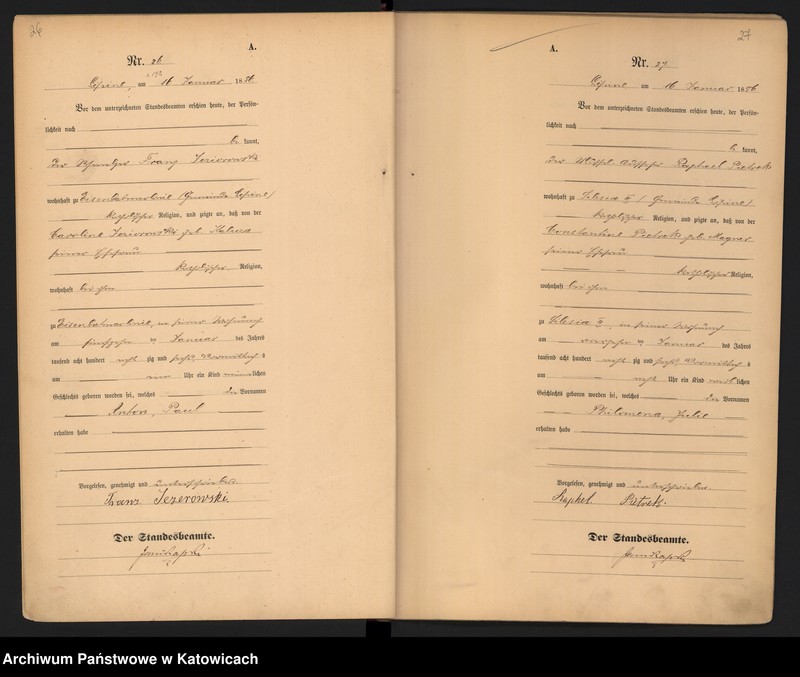 26
A.
Nr. 26
Lipine, am 16 Januar 1886
Vor dem unterzeichneten Standesbeamten erschien heute, der Persön-
lichkeit nach
be kannt,
der Schmelzer Franz
wohnhaft zu (Gemeinde Lipine)
katholischer Religion, und zeigte an, daß von der
Caroline geb.
seiner Ehefrau
katholischer Religion,
wohnhaft bei ihm
zu in seiner Wohnung
am fünfzehn ten Januar des Jahres
tausend acht hundert acht zig und sechs Vormittags
um neun Uhr ein Kind männlichen
Geschlechts geboren worden sei, welches die Vornamen
Anton, Paul
erhalten habe
Vorgelesen, genehmigt und unterschrieben.
Franz Jezerowski.
Der Standesbeamte.
27
A.
Nr. 27
Lipine am 16 Januar 1886
Vor dem unterzeichneten Standesbeamten erschien heute, der Persön-
lichkeit nach
be kannt,
der Raphael Pietrek
wohnhaft zu Silesia (Gemeinde Lipine)
katholischer Religion, und zeigte an, daß von der
Constantine Pietrek geb. Magner
seiner Ehefrau
katholischer Religion,
wohnhaft bei ihm
zu Silesia in seiner Wohnung
am ten Januar des Jahres
tausend acht hundert acht zig und sechs Vormittags
um acht Uhr ein Kind weiblichen
Geschlechts geboren worden sei, welches die Vornamen
Philomena, Julie
erhalten habe
Vorgelesen, genehmigt und unterschrieben.
Raphel Pietrek.
Der Standesbeamte.
Archiwum Państwowe w Katowicach